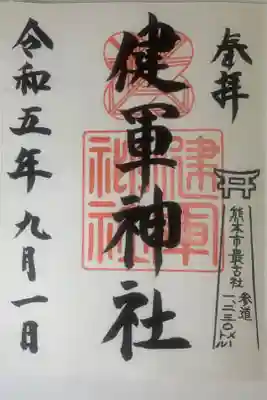 奉拝
熊本市最古社
参道
一、二三〇メートル
健軍神社
健軍
神社
令和五年九月一日